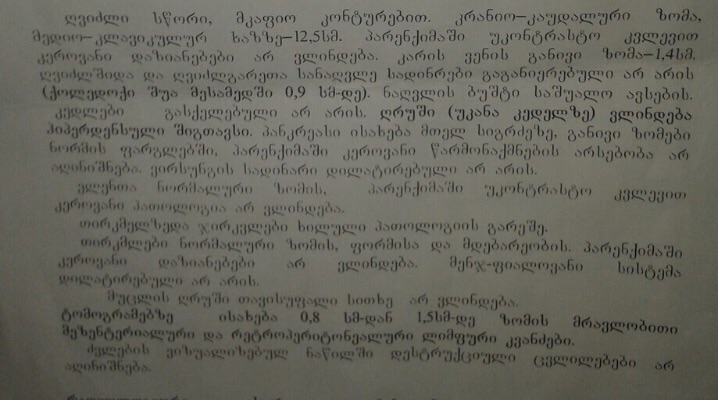 ღვიძლი სწორი, მკაფიო კონტურებით. კრანიო–კაუდალური ზომა,
მედიო–კლავიკულურ ხაზზე–12,5სმ. პარენქიმაში უკონტრასტო კვლევით
კეროვანი დაზიანებები არ ვლინდება. კარის ვენის განივი ზომა–1,4სმ.
ღვიძლშიდა და ღვიძლგარეთა სანაღვლე სადინრები გაგანიერებული არ არის
(ქოლედოქი შუა მესამედში 0,9 სმ-დე). ნაღვლის ბუშტი საშუალო ავსების.
კედლები გასქელებული არ არის. ღრუში (უკანა კედელზე) ვლინდება
ჰიპერდენსული შიგთავსი. პანკრეასი ისახება მთელ სიგრძეზე, განივი ზომები
ნორმის ფარგლებში, პარენქიმაში კეროვანი წარმონაქმნების არსებობა არ
აღინიშნება. ვირსუნგის სადინარი დილატირებული არ არის.
ელენთა ნორმალური ზომის, პარენქიმაში უკონტრასტო კვლევით
კეროვანი პათოლოგია არ ვლინდება.
თირკმელზედა ჯირკვლები ხილული პათოლოგიის გარეშე.
თირკმლები ნორმალური ზომის, ფორმისა და მდებარეობის. პარენქიმაში
კეროვანი დაზიანებები არ ვლინდება. მენჯ-ფიალოვანი სისტემა
დილატირებული არ არის.
მუცლის ღრუში თავისუფალი სითხე არ ვლინდება.
ტომოგრამებზე ისახება 0,8 სმ-დან 1,5სმ-დე ზომის მრავლობითი
მეზენტერიალური და რეტროპერიტონეალური ლიმფური კვანძები.
ძვლების ვიზუალიზებულ ნაწილში დესტრუქციული ცვლილებები არ
აღინიშნება.